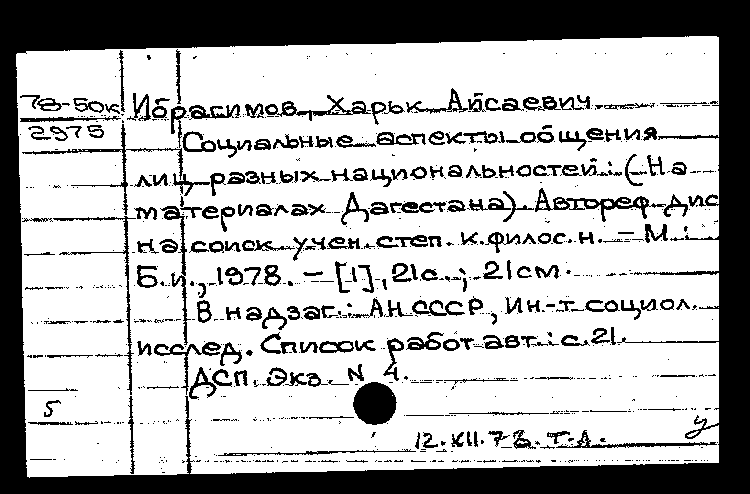 78-50к Ибрагимов, Харьк Айсаевич
2975 Социальные аспекты общения
лиц разных национальностей: (На
материалах Дагестана). Автореф. дис
на соиск. учен. степ. к. филос. н. - М.:
Б.и., 1978. - [1], 21с.; 21см.
В надзаг.: АН СССР, Ин-т социол.
исслед. Список работ авт.: с. 21.
ДСП. Экз. N 4.
5
12.XII.78. Т-А. У